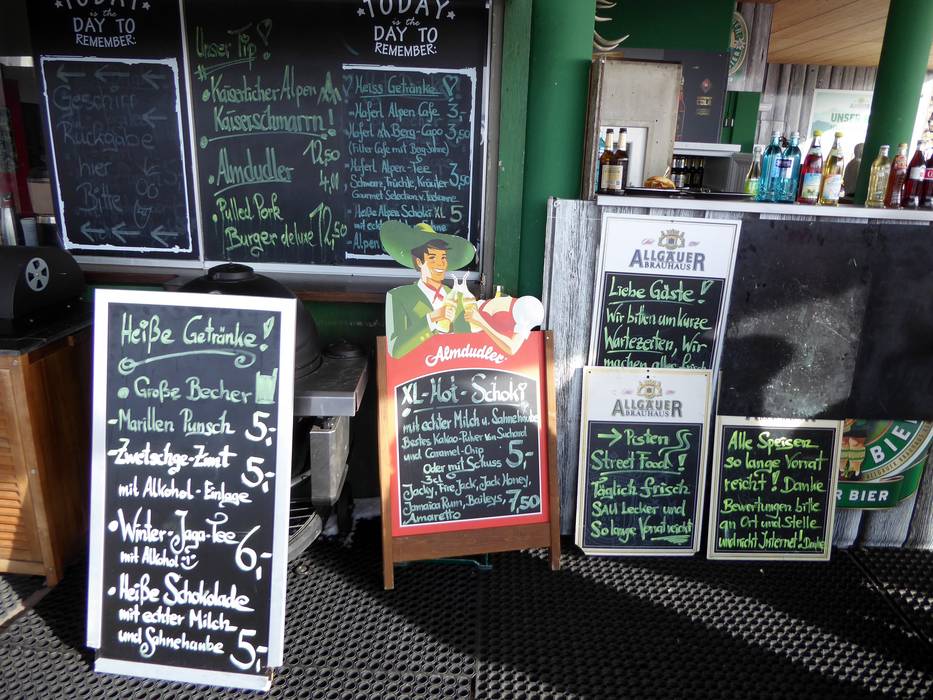 TODAY
is the
DAY TO
REMEMBER:
Geschirr
Rückgabe
hier
Bitte
Unser Tip!
• Kaiserlicher Alpen
Kaiserschmarrn!
12,50
• Almdudler
4,00
• Pulled Pork
Burger deluxe 12,50
TODAY
is the
DAY TO
REMEMBER:
Heiss Getränke
- Haferl Alpen Cafe 3,-
- Haferl Berg-Capo 3,50
(Filter Cafe mit Berg-Sahne)
- Haferl Alpen-Tee 3,50
Schwarz, Früchte, Kräuter
Gourmet Selection
- Heiße Alpen Schoki XL 5
mit
- Alpen
Heiße Getränke!
• Große Becher
- Marillen Punsch 5,-
- Zwetschge-Zimt 5,-
mit Alkohol-Einlage
• Winter-Jaga-Tee 6,-
mit Alkohol
• Heiße Schokolade
mit echter Milch
und Sahnehaube 5,-
Almdudler
XL-Hot-Schoki
mit echter Milch u. Sahnehaube
Bestes Kakao-Pulver von Suchard
und Caramel-Chip 5,-
Oder mit Schuss
3cl
Jacky, Fire Jack, Jack Honey,
Jamaica Rum, Baileys, 7,50
Amaretto
ALLGÄUER
BRAUHAUS
Liebe Gäste!
Wir bitten um kurze
Wartezeiten, Wir
machen alles
ALLGÄUER
BRAUHAUS
→ Pisten
Street Food!
Täglich frisch
SAU Lecker und
So lange Vorrat reicht
Alle Speisen
so lange Vorrat
reicht! Danke
Bewertungen bitte
an Ort und Stelle
und nicht Internet! Danke
UNSER
BIE
R BIER